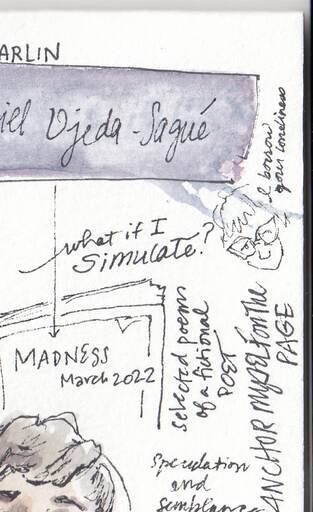 ARLIN
iel Ojeda-Sagué
I borrow
your loneliness
what if I
Simulate?
MADNESS
March 2022
selected poems
of a fictional
POET
ANCHOR MYSELF FOR THE
PAGE
speculation
and
semblance